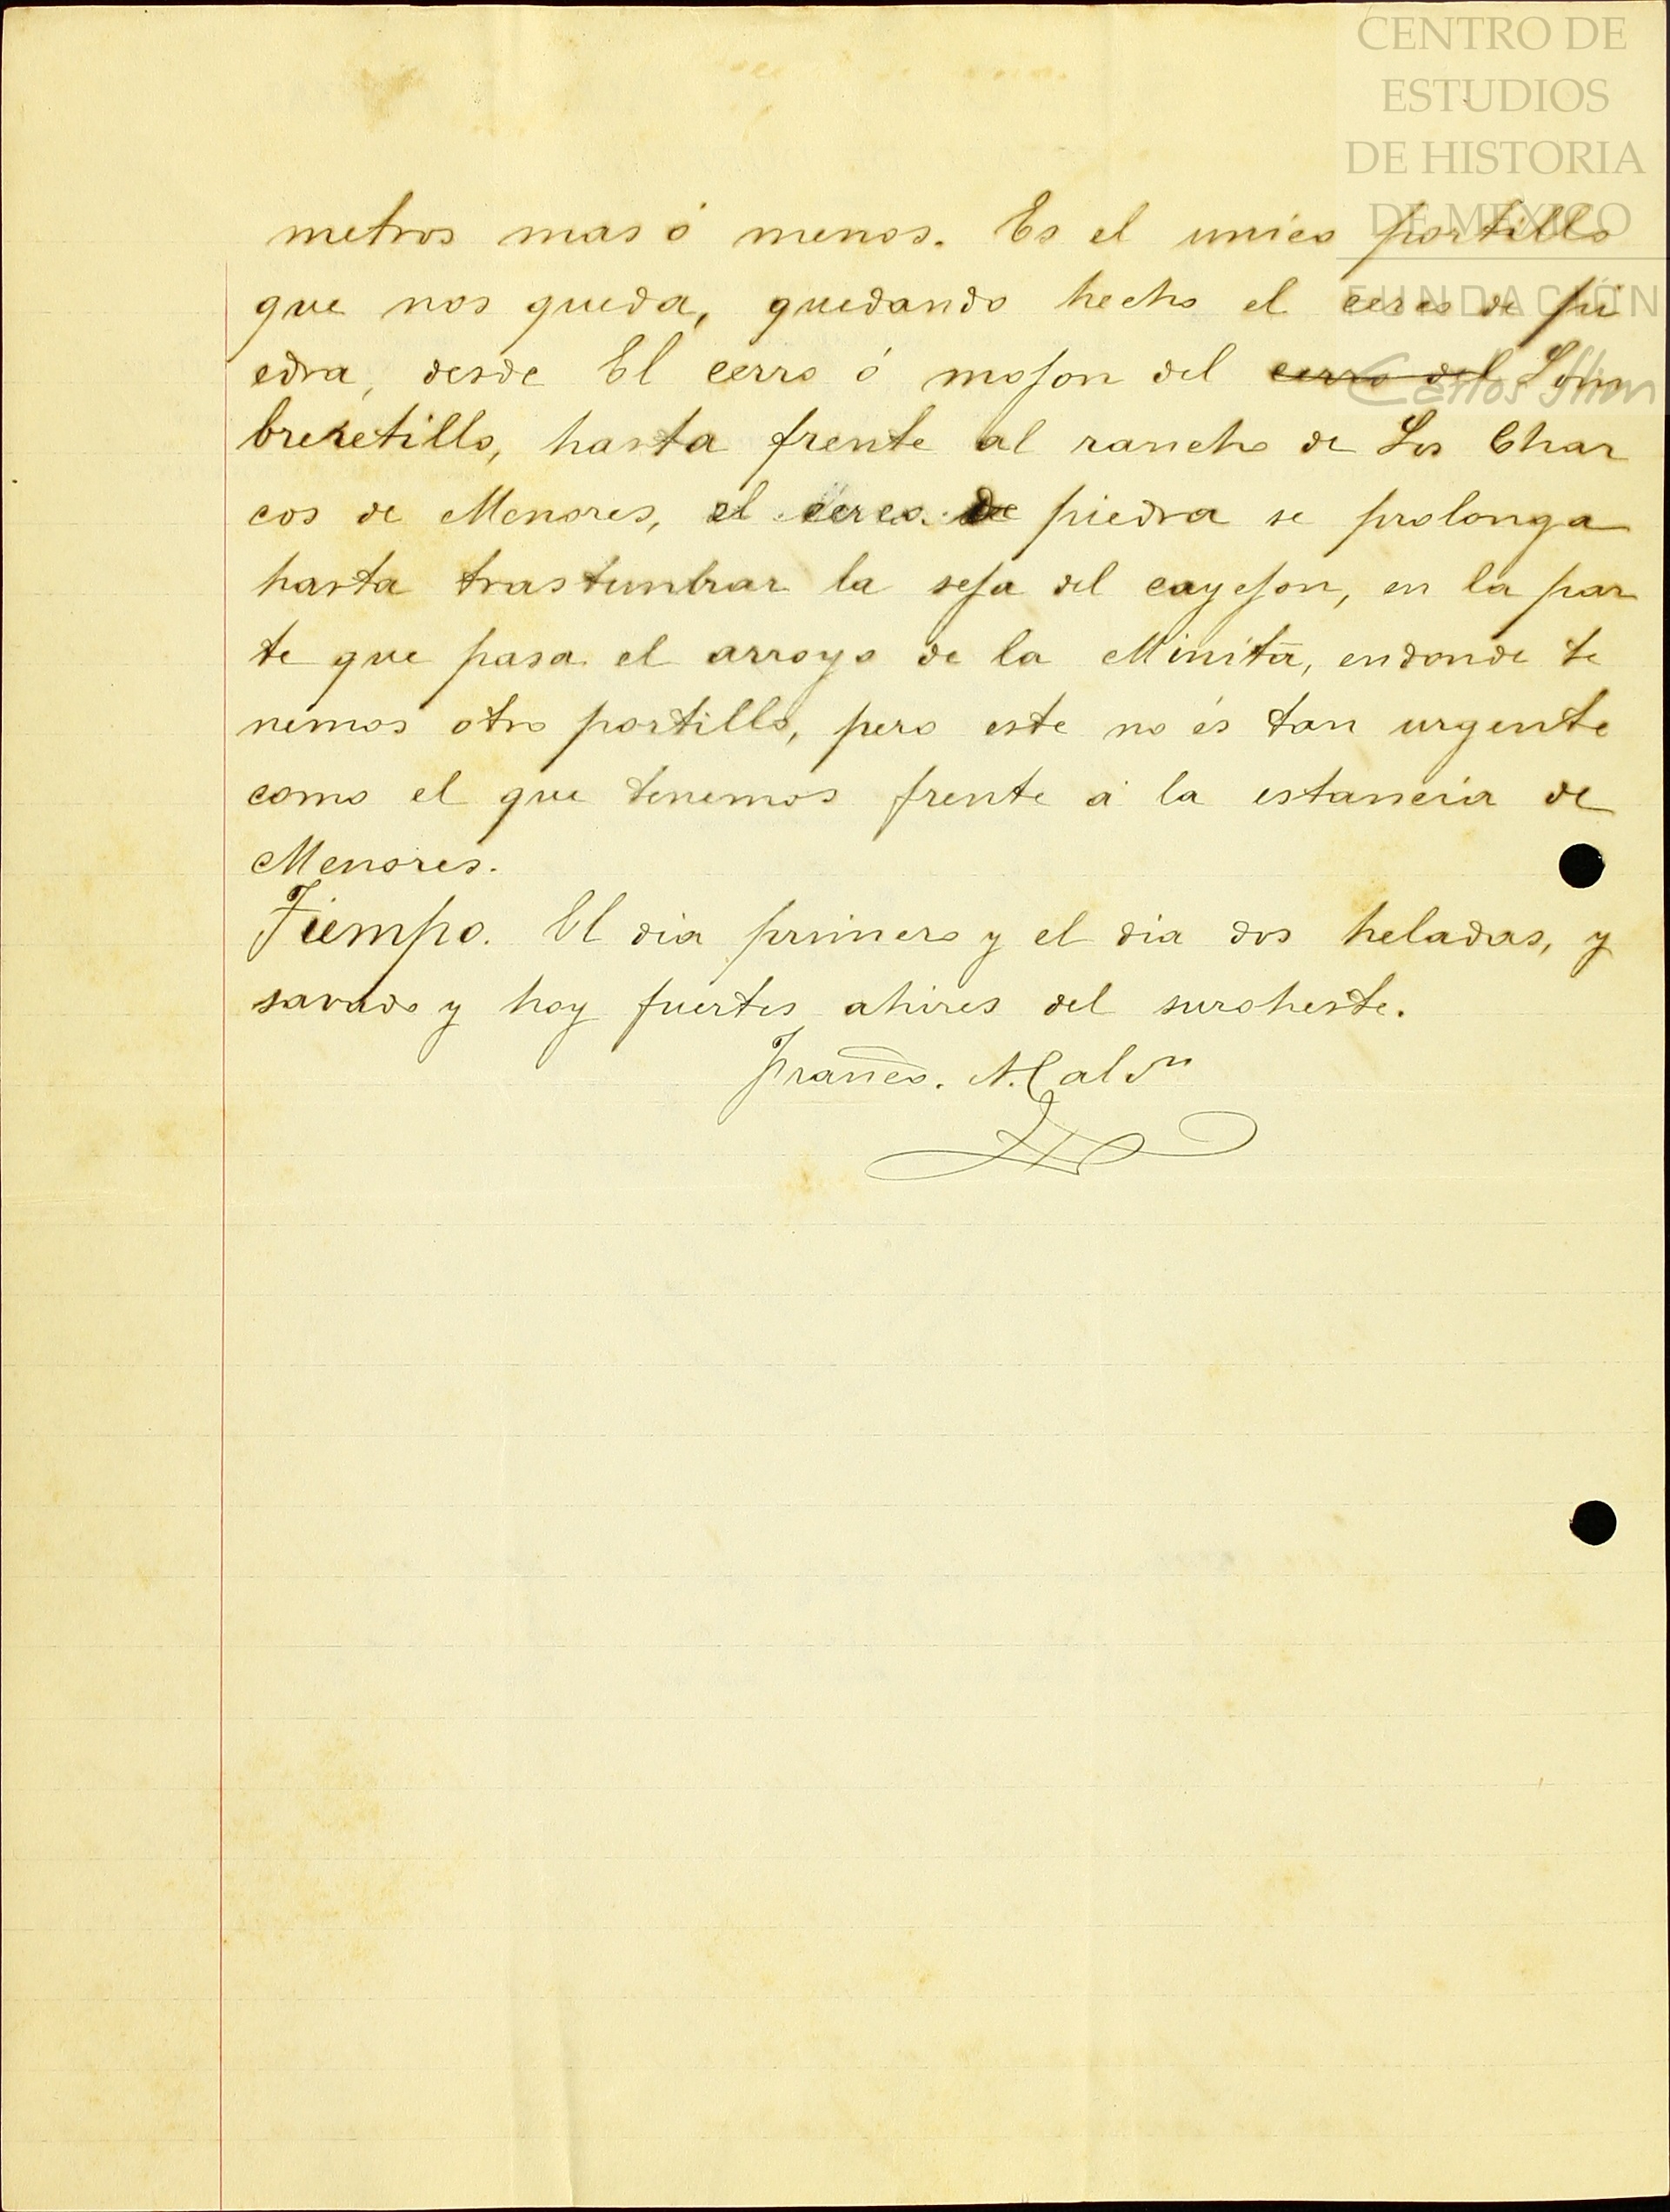 CENTRO DE
ESTUDIOS
DE HISTORIA
DE MÉXICO
FUNDACIÓN
Carlos Slim
metros mas ó menos. Es el unico portillo
que nos queda, quedando hecho el cerco de pi
edra, desde El cerro ó mojon del cerro del Som
breretillo, hasta frente al rancho de Los Char
cos de Menores, el cerco de piedra se prolonga
hasta trastunbrar la seja del cayejon, en la par
te que pasa el arroyo de la Minita, endonde te
nemos otro portillo, pero este no és tan urgente
como el que tenemos frente á la estancia de
Menores.
Tiempo. El dia primero y el dia dos heladas, y
savado y hoy fuertes ahires del suroheste.
Franco.